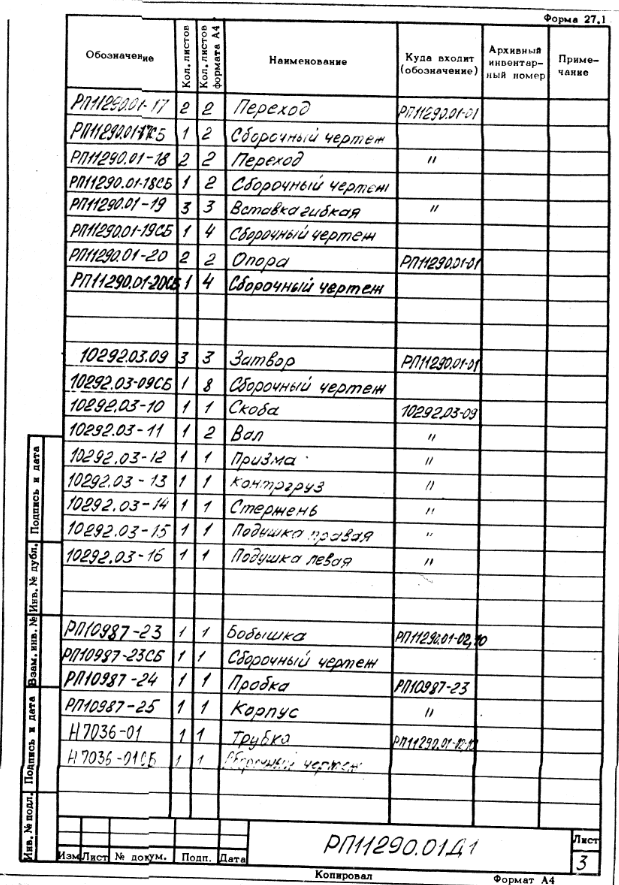 Форма 27.1
Обозначение Кол. листов Кол. листов формата А4 Наименование Куда входит (обозначение) Архивный инвентар-ный номер Приме-чание
РП11290.01-17 2 2 Переход РП11290.01-01
РП11290.01-17СБ 1 2 Сборочный чертеж
РП11290.01-18 2 2 Переход "
РП11290.01-18СБ 1 2 Сборочный чертеж
РП11290.01-19 3 3 Вставка гибкая "
РП11290.01-19СБ 1 4 Сборочный чертеж
РП11290.01-20 2 2 Опора РП11290.01-01
РП11290.01-20СБ 1 4 Сборочный чертеж
10292.03.09 3 3 Затвор РП11290.01-01
10292.03-09СБ 1 8 Сборочный чертеж
10292.03-10 1 1 Скоба 10292.03-09
10292.03-11 1 2 Вал "
10292.03-12 1 1 Призма "
10292.03-13 1 1 Контргруз "
10292.03-14 1 1 Стержень "
10292.03-15 1 1 Подушка правая "
10292.03-16 1 1 Подушка левая "
РП10987-23 1 1 Бобышка РП11290.01-02,10
РП10987-23СБ 1 1 Сборочный чертеж
РП10987-24 1 1 Пробка РП10987-23
РП10987-25 1 1 Корпус "
Н7036-01 1 1 Трубка
Н7036-01СБ 1 1 Сборочный чертеж
Подпись и дата
Инв. № дубл.
Взам. инв. №
Подпись и дата
Инв. № подл.
Изм Лист № докум. Подп. Дата
РП11290.01Д1
Лист
3
Копировал Формат А4